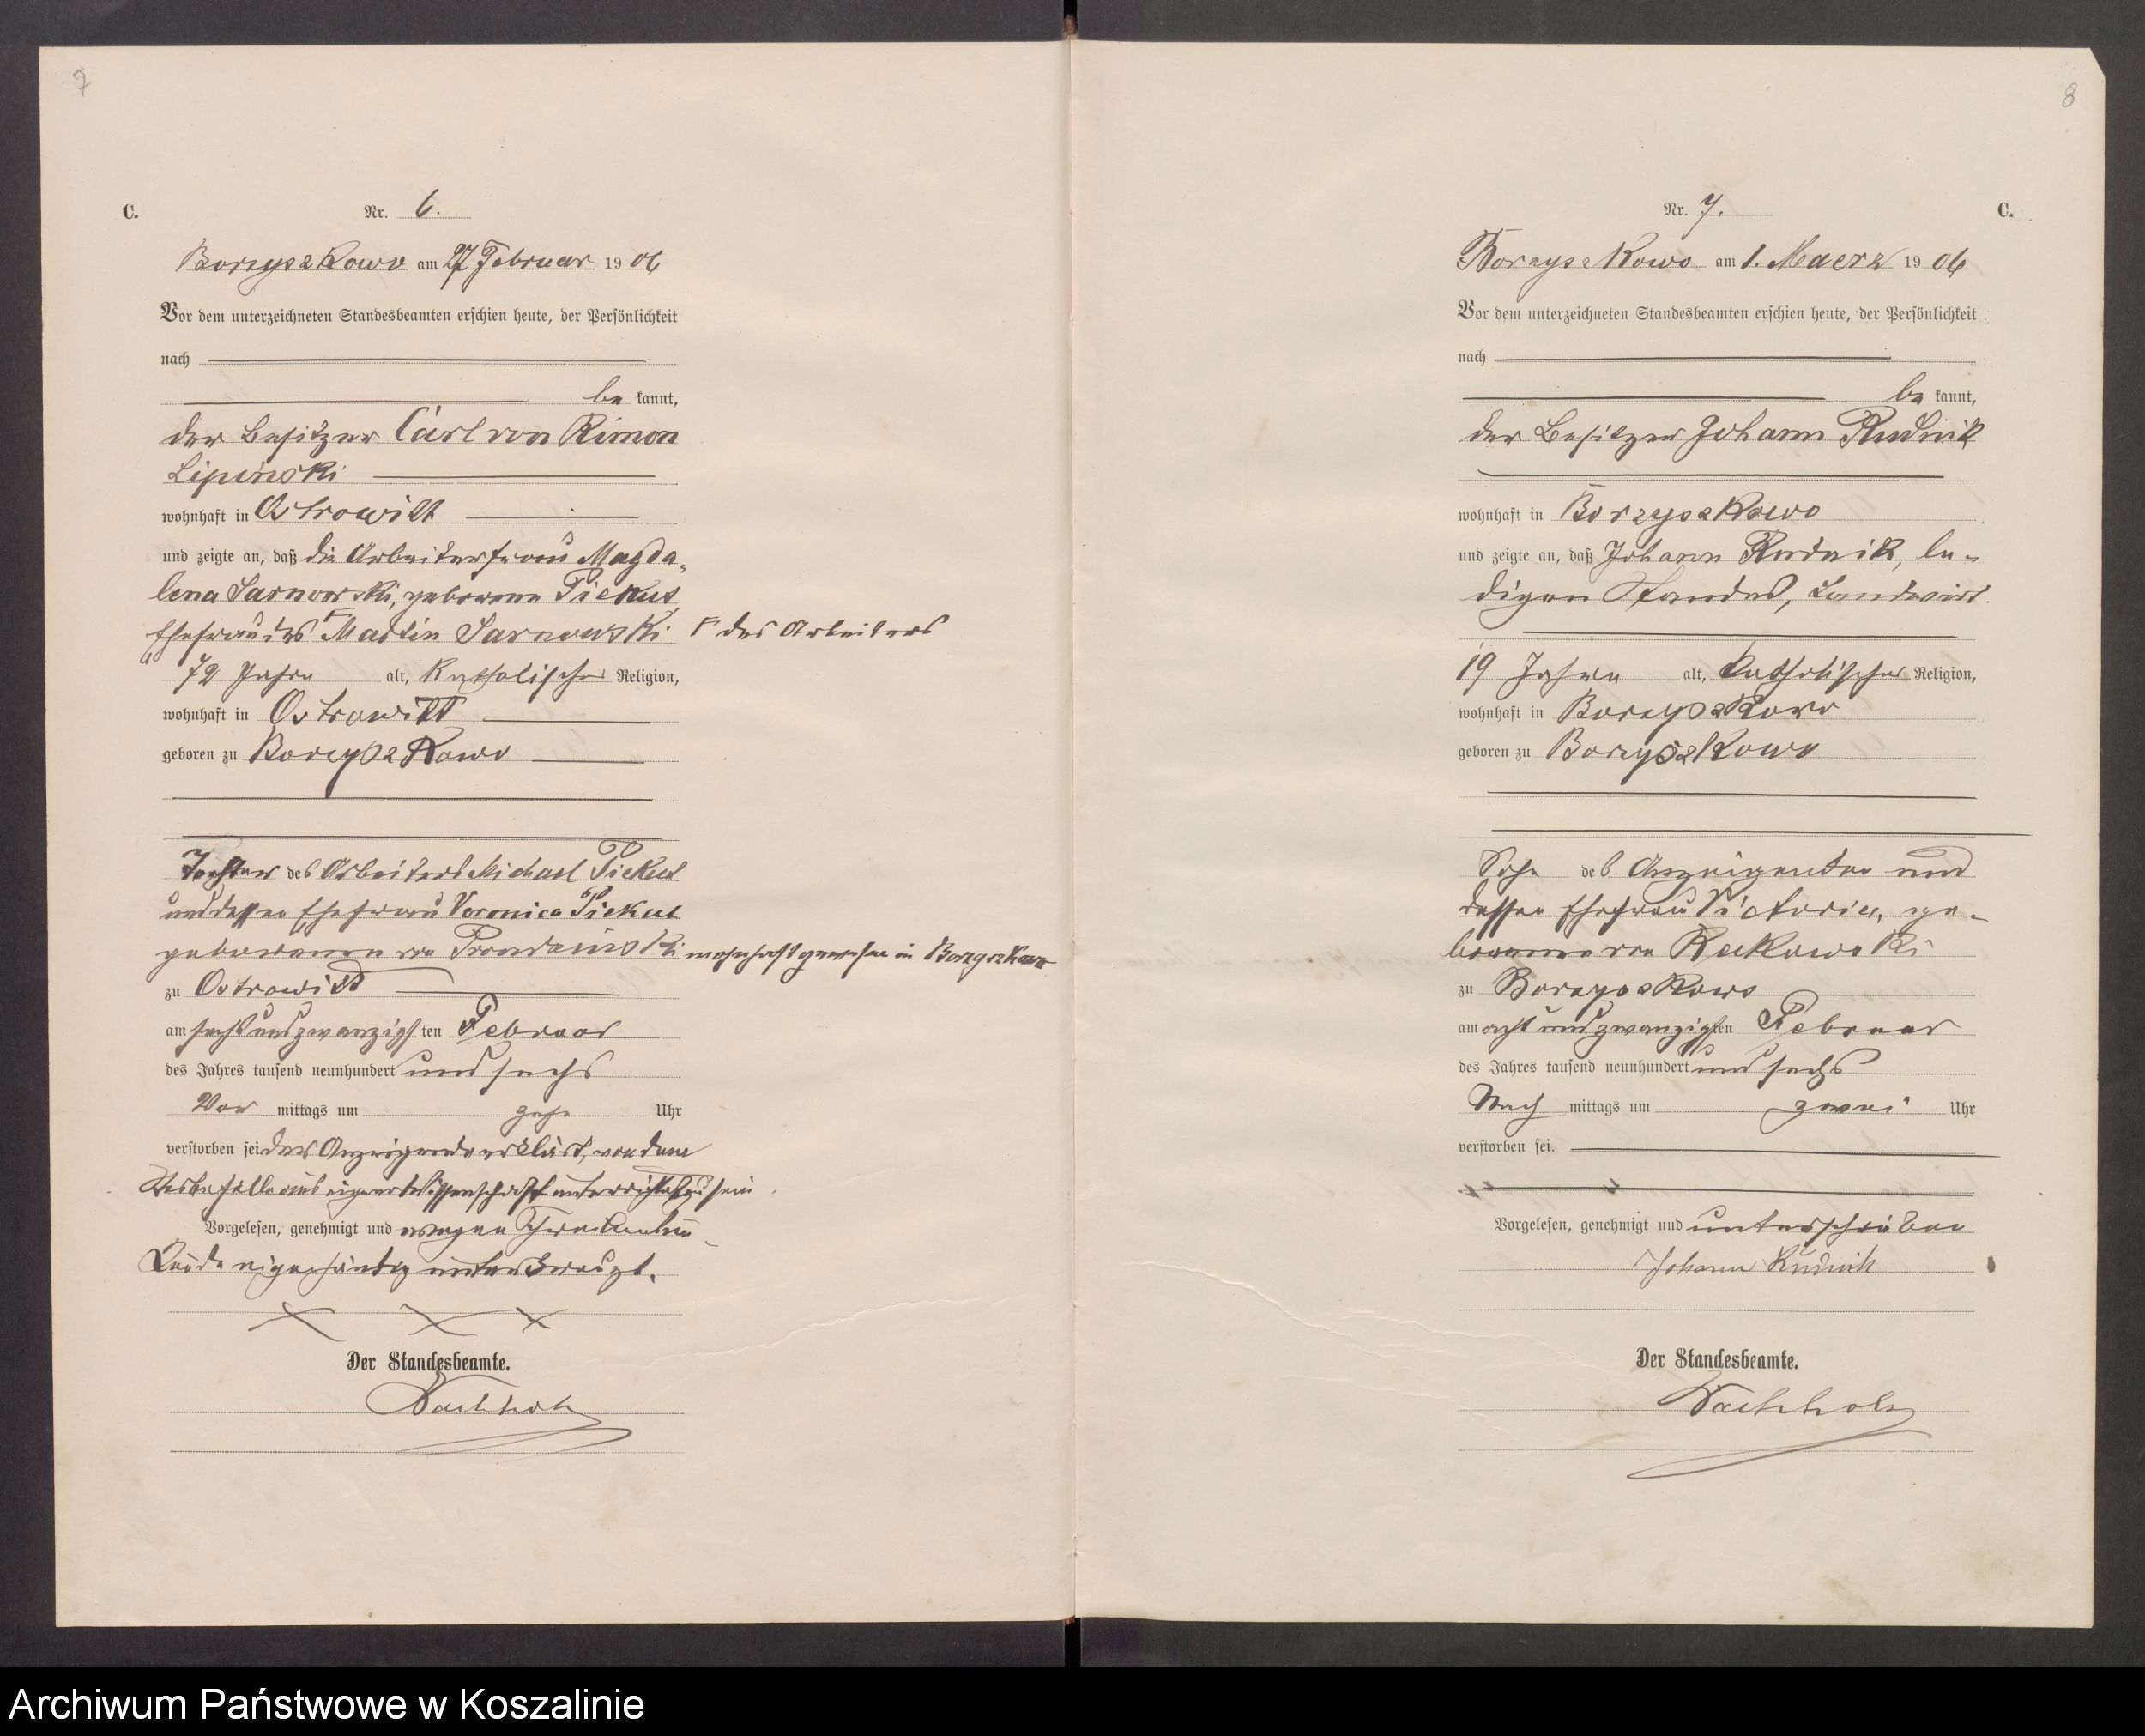 7
C.
Nr. 6.
Borzyszkowo am 27 Februar 1906
Vor dem unterzeichneten Standesbeamten erschien heute, der Persönlichkeit
nach
be kannt,
der Besitzer Carl von Rimon
Lipinski
wohnhaft in Ostrowitt
und zeigte an, daß die Arbeiterfrau Magda-
lena Sarnowski, geborene Piekut
Ehefrau des Γ Martin Sarnowski Γ des Arbeiters
72 Jahre alt, katholischer Religion,
wohnhaft in Ostrowitt
geboren zu Borzyszkowo
Tochter des Arbeiters Michael Piekut
und dessen Ehefrau Veronica Piekut
geborenen von wohnhaft gewesen in Borzyszkowo
zu Ostrowitt
am sechsundzwanzigsten Februar
des Jahres tausend neunhundert und sechs
Vor mittags um zehn Uhr
verstorben sei der Anzeigende erklärt, von dem
Sterbefalle aus eigner Wissenschaft unterrichtet zu sein
Vorgelesen, genehmigt und wegen Schreibenun-
kunde eigenhändig unterkreuzt.
X X X
Der Standesbeamte.
Wachholz
8
Nr. 7. C.
Borzyszkowo am 1. Maerz 1906
Vor dem unterzeichneten Standesbeamten erschien heute, der Persönlichkeit
nach
be kannt,
der Besitzer Johann Rudnik
wohnhaft in Borzyszkowo
und zeigte an, daß Johann Rudnik, le-
digen Standes, Landwirt
19 Jahre alt, katholischer Religion,
wohnhaft in Borzyszkowo
geboren zu Borzyszkowo
Sohn des Anzeigenden und
dessen Ehefrau Victoria, ge-
borenen von Rekowski
zu Borzyszkowo
am acht und zwanzigsten Februar
des Jahres tausend neunhundert und sechs
Nach mittags um zwei Uhr
verstorben sei.
Vorgelesen, genehmigt und unterschrieben
Johann Rudnik
Der Standesbeamte.
Wachholz
Archiwum Państwowe w Koszalinie